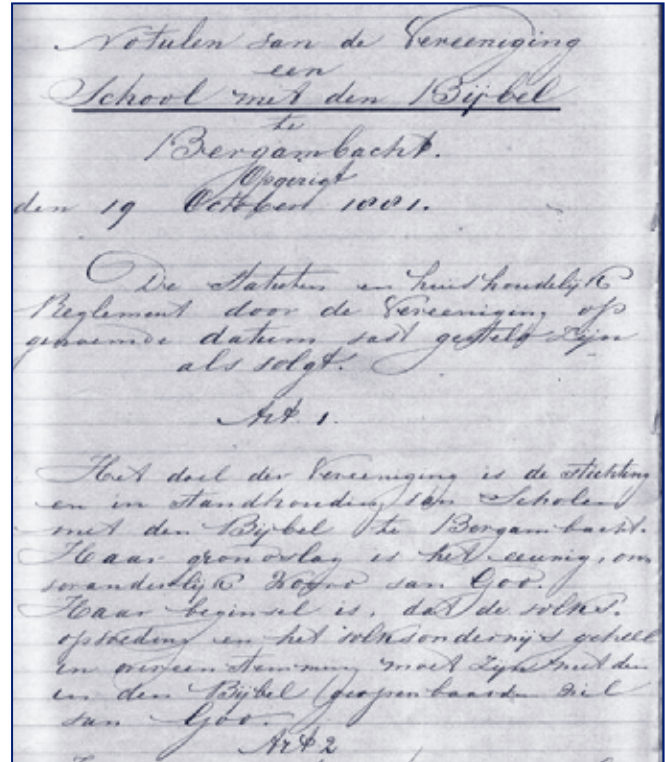 Notulen van de Vereeniging
een
School met den Bijbel
te
Bergambacht.
Opgerigt
den 19 October 1881.
De Statuten en huishoudelijk
Reglement door de Vereeniging op
genoemde datum vast gesteld zijn
als volgt.
Art. 1.
Het doel der Vereeniging is de stichting
en in standhouding van Scholen
met den Bijbel te Bergambacht.
Haar grondslag is het eeuwig, on
veranderlijk Woord van God.
Haar beginsel is, dat de volks
opvoeding en het volksonderwijs geheel
in overeenstemming moet zijn met den
in den Bijbel geopenbaarden wil
van God.
Art 2